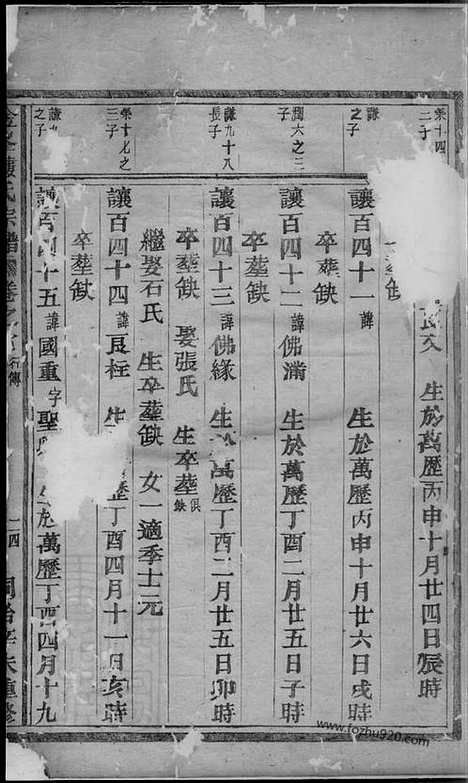 榮十四
二子
良文 生於萬歷丙申十月廿四日辰時
卒塟缺
謙
之子
讓百四十一 諱 生於萬歷丙申十月廿六日戌時
卒塟缺
潤六之三
子
讓百四十二 諱佛滿 生於萬歷丁酉二月廿五日子時
卒塟缺
謙九十八
長子
讓百四十三 諱佛緣 生於萬歷丁酉二月廿五日卯時
卒塟缺 娶張氏 生卒塟俱缺
繼娶石氏 生卒塟缺 女一適季士元
榮十九之
三子
讓百四十四 諱良柱 生 歷丁酉四月十一日亥時
卒塟缺
謙
之子
讓百四十五 諱國重 字聖 生於萬歷丁酉四月十九
氏宗譜 卷之 行傳 十四 同治辛未重修
www.fozhu920.com